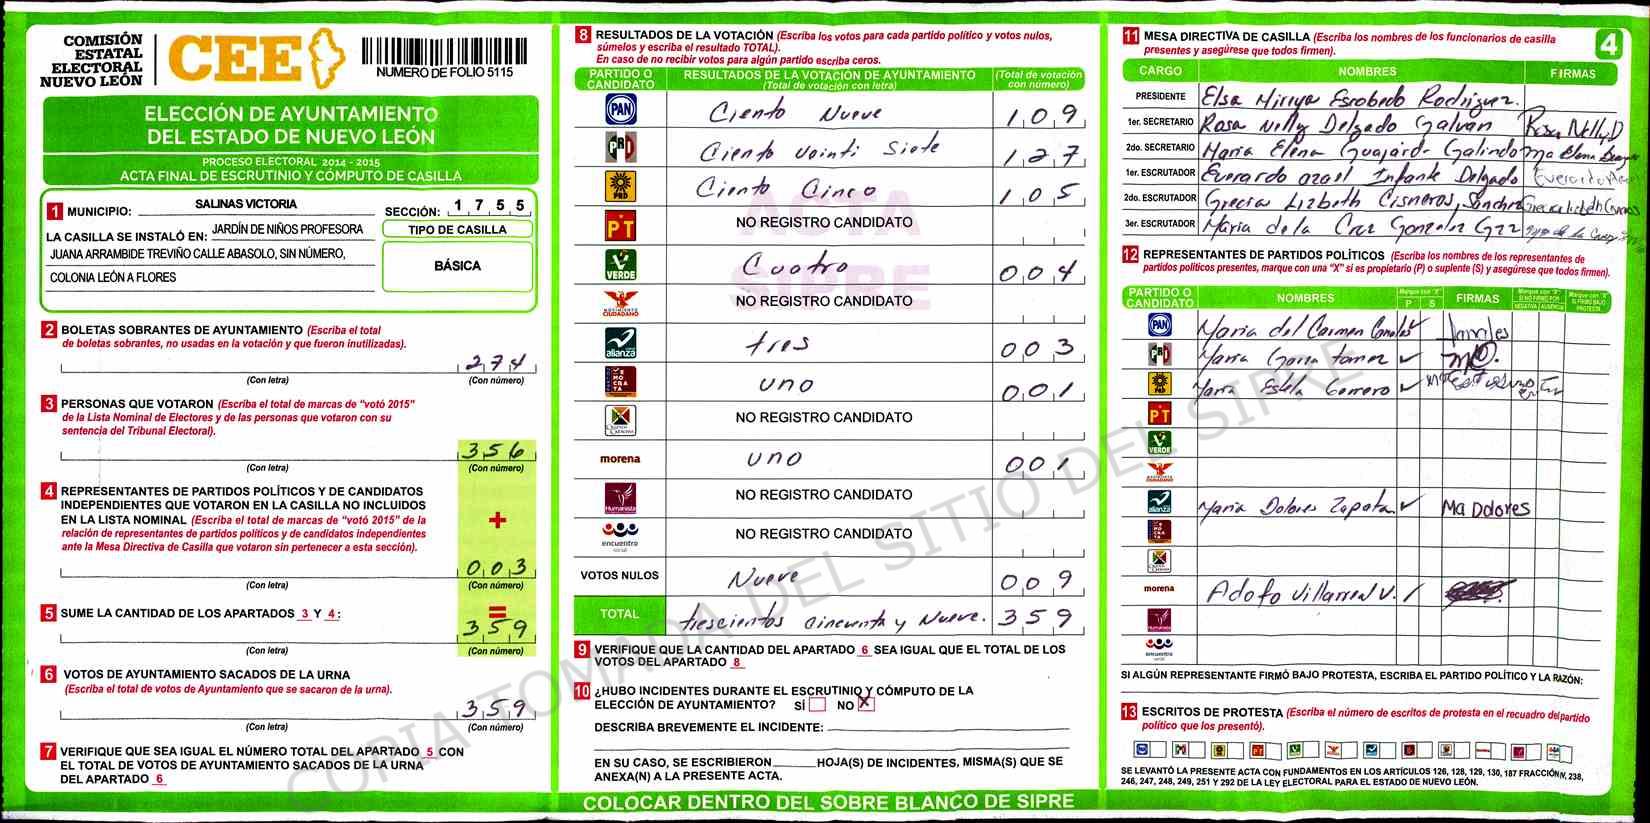 COMISIÓN
ESTATAL
ELECTORAL
NUEVO LEÓN
CEE
NUMERO DE FOLIO 5115
ELECCIÓN DE AYUNTAMIENTO
DEL ESTADO DE NUEVO LEÓN
PROCESO ELECTORAL 2014 - 2015
ACTA FINAL DE ESCRUTINIO Y CÓMPUTO DE CASILLA
1 MUNICIPIO: SALINAS VICTORIA
SECCIÓN: 1 7 5 5
LA CASILLA SE INSTALÓ EN: JARDÍN DE NIÑOS PROFESORA
JUANA ARRAMBIDE TREVIÑO CALLE ABASOLO, SIN NÚMERO,
COLONIA LEÓN A FLORES
TIPO DE CASILLA
BÁSICA
2 BOLETAS SOBRANTES DE AYUNTAMIENTO (Escriba el total
de boletas sobrantes, no usadas en la votación y que fueron inutilizadas).
274
(Con letra) (Con número)
3 PERSONAS QUE VOTARON (Escriba el total de marcas de "votó 2015"
de la Lista Nominal de Electores y de las personas que votaron con su
sentencia del Tribunal Electoral).
356
(Con letra) (Con número)
4 REPRESENTANTES DE PARTIDOS POLÍTICOS Y DE CANDIDATOS
INDEPENDIENTES QUE VOTARON EN LA CASILLA NO INCLUIDOS
EN LA LISTA NOMINAL (Escriba el total de marcas de "votó 2015" de la
relación de representantes de partidos políticos y de candidatos independientes
ante la Mesa Directiva de Casilla que votaron sin pertenecer a esta sección).
+
003
(Con letra) (Con número)
5 SUME LA CANTIDAD DE LOS APARTADOS 3 Y 4:
=
359
(Con letra) (Con número)
6 VOTOS DE AYUNTAMIENTO SACADOS DE LA URNA
(Escriba el total de votos de Ayuntamiento que se sacaron de la urna).
359
(Con letra) (Con número)
7 VERIFIQUE QUE SEA IGUAL EL NÚMERO TOTAL DEL APARTADO 5 CON
EL TOTAL DE VOTOS DE AYUNTAMIENTO SACADOS DE LA URNA
DEL APARTADO 6
8 RESULTADOS DE LA VOTACIÓN (Escriba los votos para cada partido político y votos nulos,
súmelos y escriba el resultado TOTAL).
En caso de no recibir votos para algún partido escriba ceros.
PARTIDO O CANDIDATO
RESULTADOS DE LA VOTACIÓN DE AYUNTAMIENTO
(Total de votación con letra)
(Total de votación con número)
PAN Ciento Nueve 109
PRD Ciento vointi Siete 127
PRD Ciento Cinco 105
PT NO REGISTRO CANDIDATO
VERDE Cuatro 004
MOVIMIENTO CIUDADANO NO REGISTRO CANDIDATO
alianza tres 003
DEMOCRATA uno 001
NO REGISTRO CANDIDATO
morena uno 001
Humanista NO REGISTRO CANDIDATO
encuentro social NO REGISTRO CANDIDATO
VOTOS NULOS Nueve 009
TOTAL trescientos cincuenta y Nueve. 359
ACTA
SIPRE
9 VERIFIQUE QUE LA CANTIDAD DEL APARTADO 6 SEA IGUAL QUE EL TOTAL DE LOS
VOTOS DEL APARTADO 8
10 ¿HUBO INCIDENTES DURANTE EL ESCRUTINIO Y CÓMPUTO DE LA
ELECCIÓN DE AYUNTAMIENTO? SÍ NO X
DESCRIBA BREVEMENTE EL INCIDENTE:
EN SU CASO, SE ESCRIBIERON HOJA(S) DE INCIDENTES, MISMA(S) QUE SE
ANEXA(N) A LA PRESENTE ACTA.
COLOCAR DENTRO DEL SOBRE BLANCO DE SIPRE
11 MESA DIRECTIVA DE CASILLA (Escriba los nombres de los funcionarios de casilla
presentes y asegúrese que todos firmen).
4
CARGO NOMBRES FIRMAS
PRESIDENTE Elsa Mireya Escobedo Rodriguez.
1er. SECRETARIO Rosa Nelly Delgado Galvan Rosa Nelly D
2do. SECRETARIO Maria Elena Guajardo Galindo Ma Elena
1er. ESCRUTADOR Everardo azael Infante Delgado Everardo
2do. ESCRUTADOR Grecia Lizbeth Cisneros, Sanchez Grecia Lizbeth
3er. ESCRUTADOR Maria de la Cruz Gonzalez Gzz
12 REPRESENTANTES DE PARTIDOS POLÍTICOS (Escriba los nombres de los representantes de
partidos políticos presentes, marque con una "X" si es propietario (P) o suplente (S) y asegúrese que todos firmen).
PARTIDO O CANDIDATO NOMBRES
Marque con "X"
P S
FIRMAS
Marque con "X" SI NO FIRMÓ POR
NEGATIVA AUSENCIA
Marque con "X" SI FIRMÓ BAJO PROTESTA
PAN Maria del Carmen Canales Canales
PRD Maria Garza tamez
PRD Maria Estela
PT
VERDE
MOVIMIENTO CIUDADANO
alianza Maria Dolores Zapata. Ma Dolores
morena Adolfo Villarreal V.
Humanista
encuentro social
SI ALGÚN REPRESENTANTE FIRMÓ BAJO PROTESTA, ESCRIBA EL PARTIDO POLÍTICO Y LA RAZÓN:
13 ESCRITOS DE PROTESTA (Escriba el número de escritos de protesta en el recuadro del partido
político que los presentó).
SE LEVANTÓ LA PRESENTE ACTA CON FUNDAMENTOS EN LOS ARTÍCULOS 126, 128, 129, 130, 187 FRACCIÓN IV, 238,
246, 247, 248, 249, 251 Y 292 DE LA LEY ELECTORAL PARA EL ESTADO DE NUEVO LEÓN.
COPIA TOMADA DEL SITIO DEL SIPRE